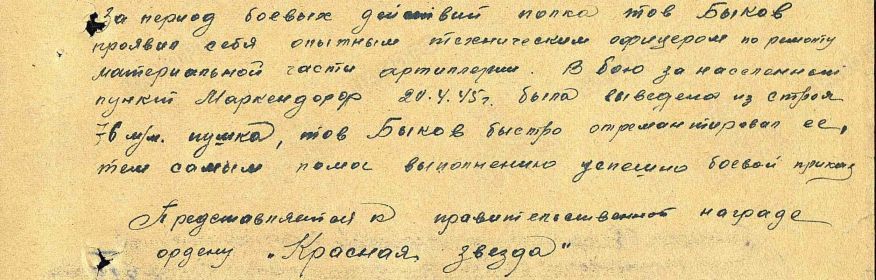 За период боевых действий полка тов Быков
проявил себя опытным техническим офицером по ремонту
материальной части артиллерии. В бою за населенный
пункт Маркендорф 20.4.45г. была выведена из строя
76 м/м. пушка, тов Быков быстро отремантировал ее,
тем самым помог выполнению успешно боевой приказ
Представляется к правительственной награде
ордену "Красная звезда"